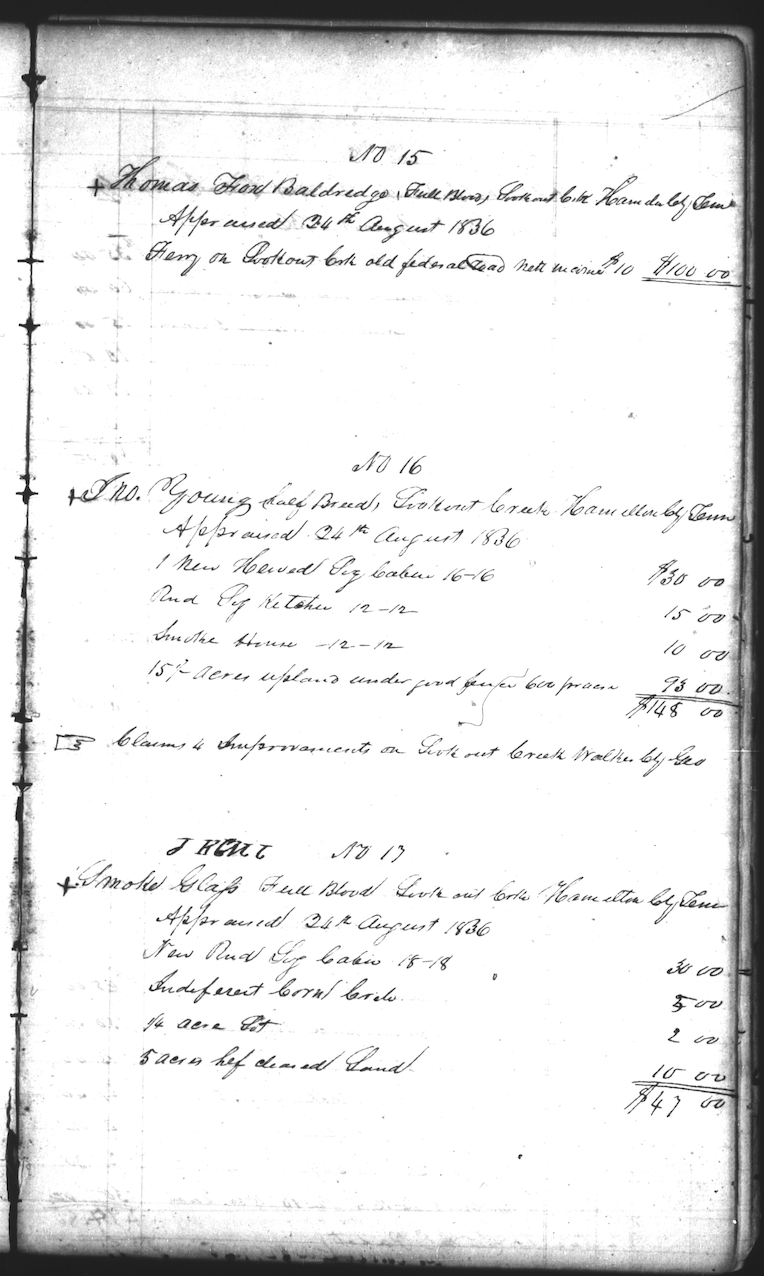 No 15
+ Thomas Fox Baldredge, Full Blood, Lookout Crk Hameln Cty Tenn
Appraised 24th August 1836
Ferry on Lookout Crk old federal road nett income $10 $100 00
No 16
+ Jno. Young half Breed, Lookout Creek Hamilton Cty Tenn
Appraised 24th August 1836
1 New Hewed Log Cabin 16-16 $30 00
Rnd Log Ketchen 12-12 15 00
Smoke House -12-12 10 00
15½ acres upland under good fence 600 pr acre 93 00
$148 00
Claims 4 Improvements on Lookout Creek Walker Cty Geo
No 17
+ Smoke Glass Full Blood Look out Crk Hamilton Cty Tenn
Appraised 24th August 1836
New Rnd Log Cabin 18-18 30 00
Indiferent Corn Crib 5 00
1/4 acre Lot 2 00
5 acres hef cleared Land 10 00
$47 00